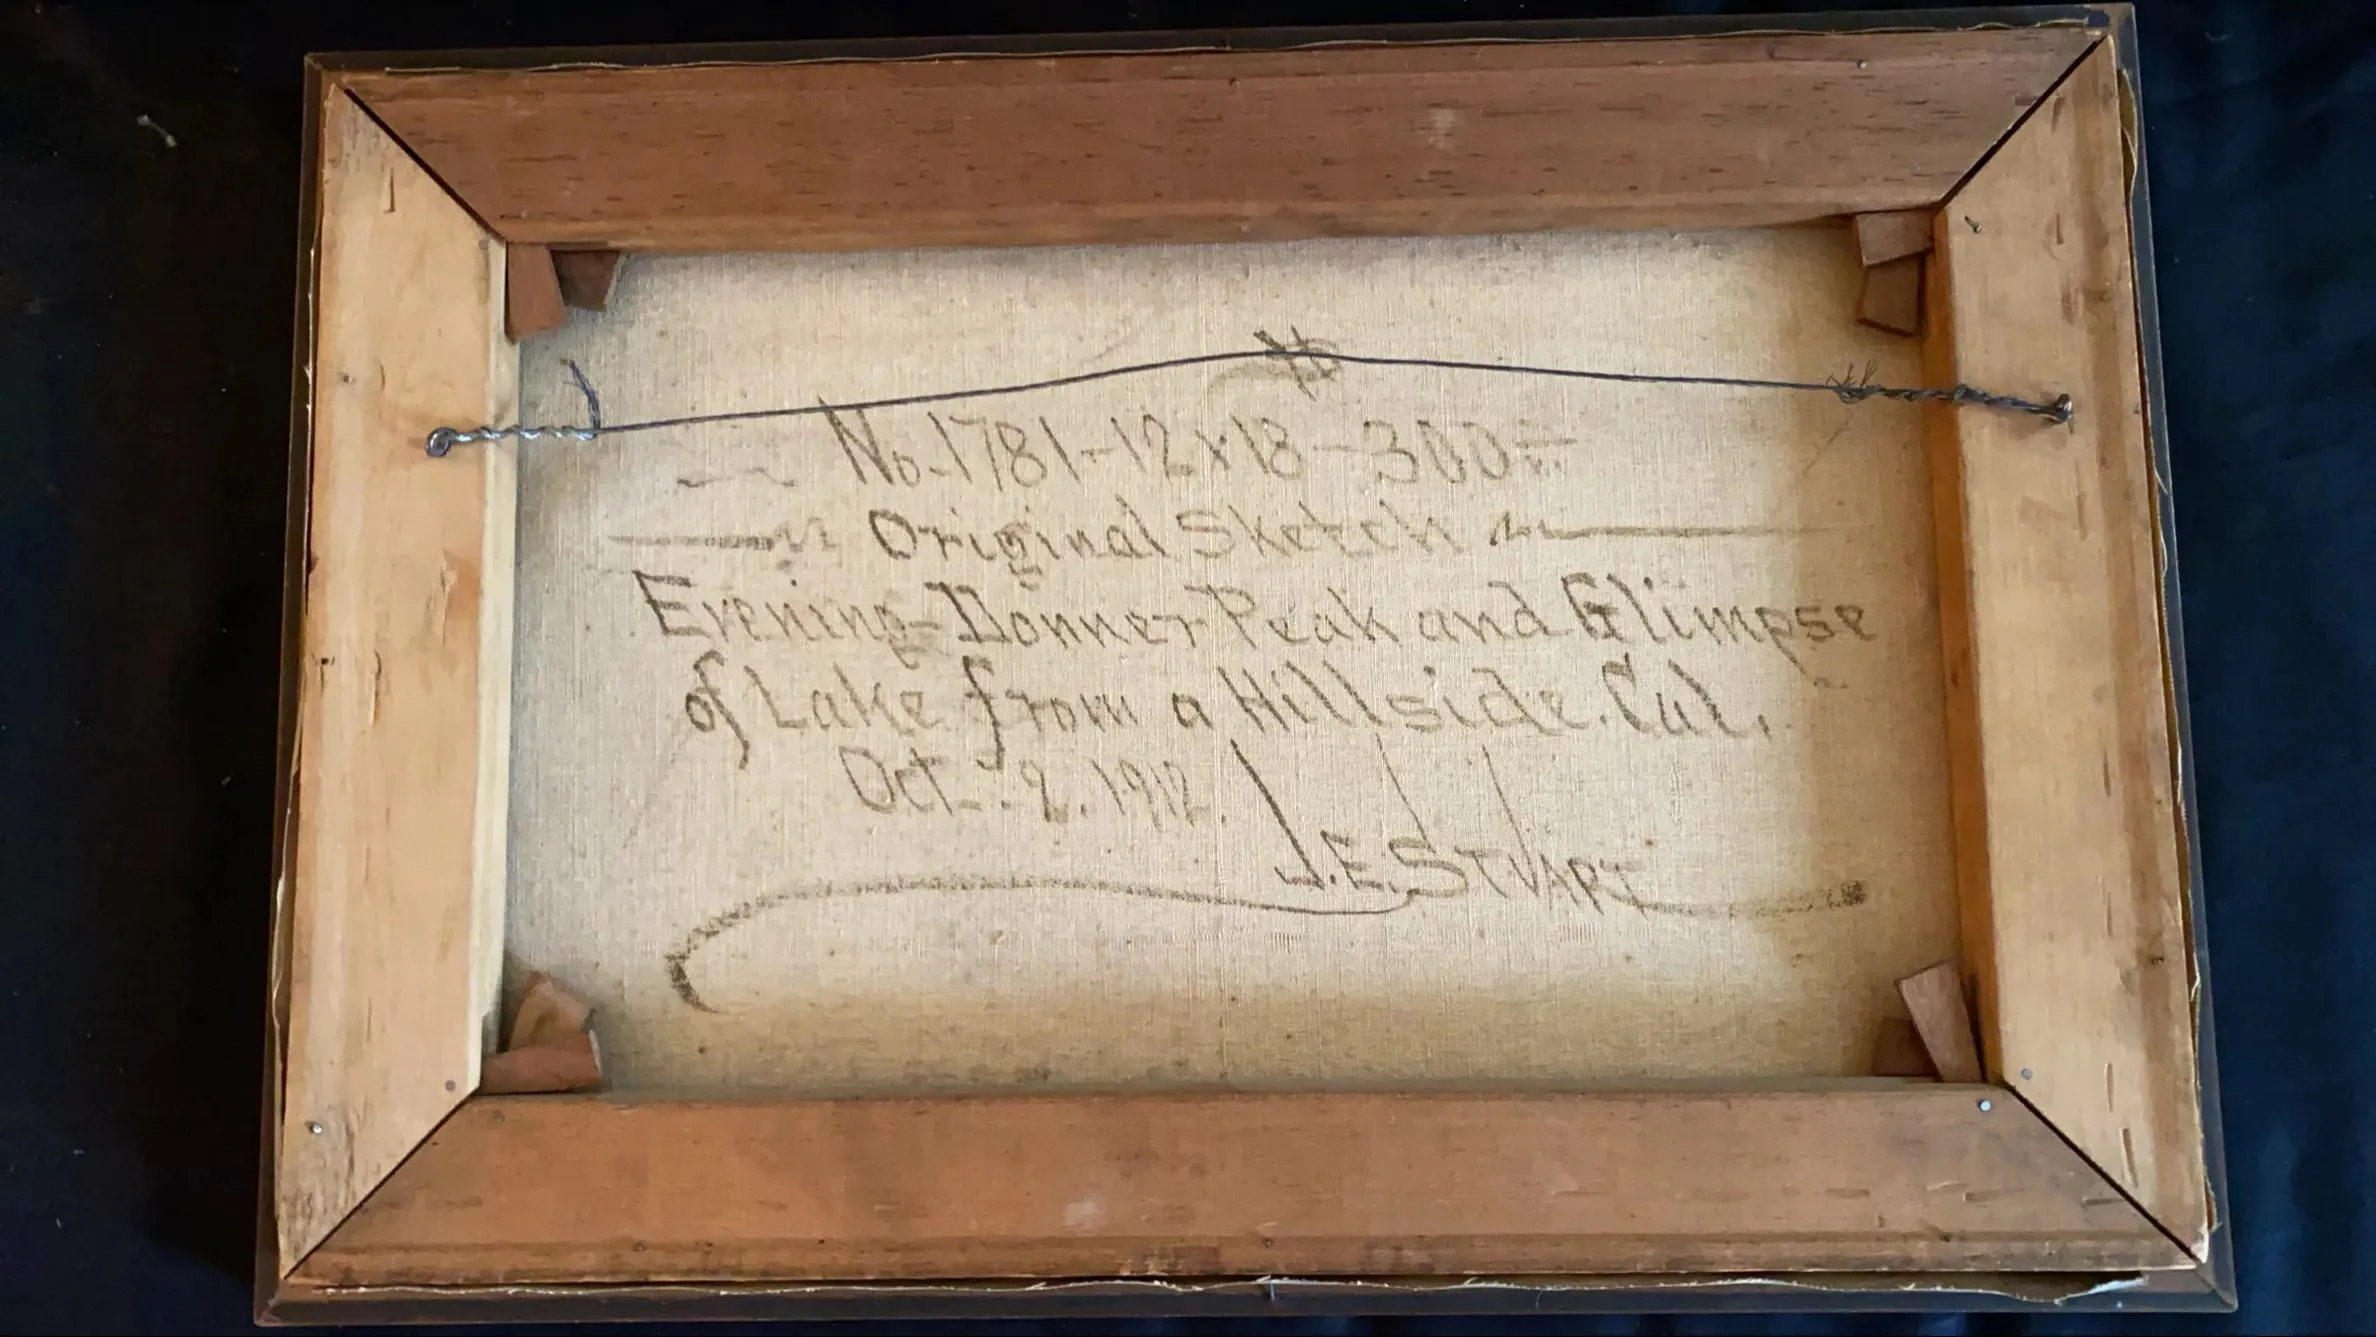 No. 1781-12x18-300=
Original Sketch
Evening-Donner Peak and Glimpse
of Lake from a Hillside. Cal.
Oct. 2. 1912.
J.E. STVART